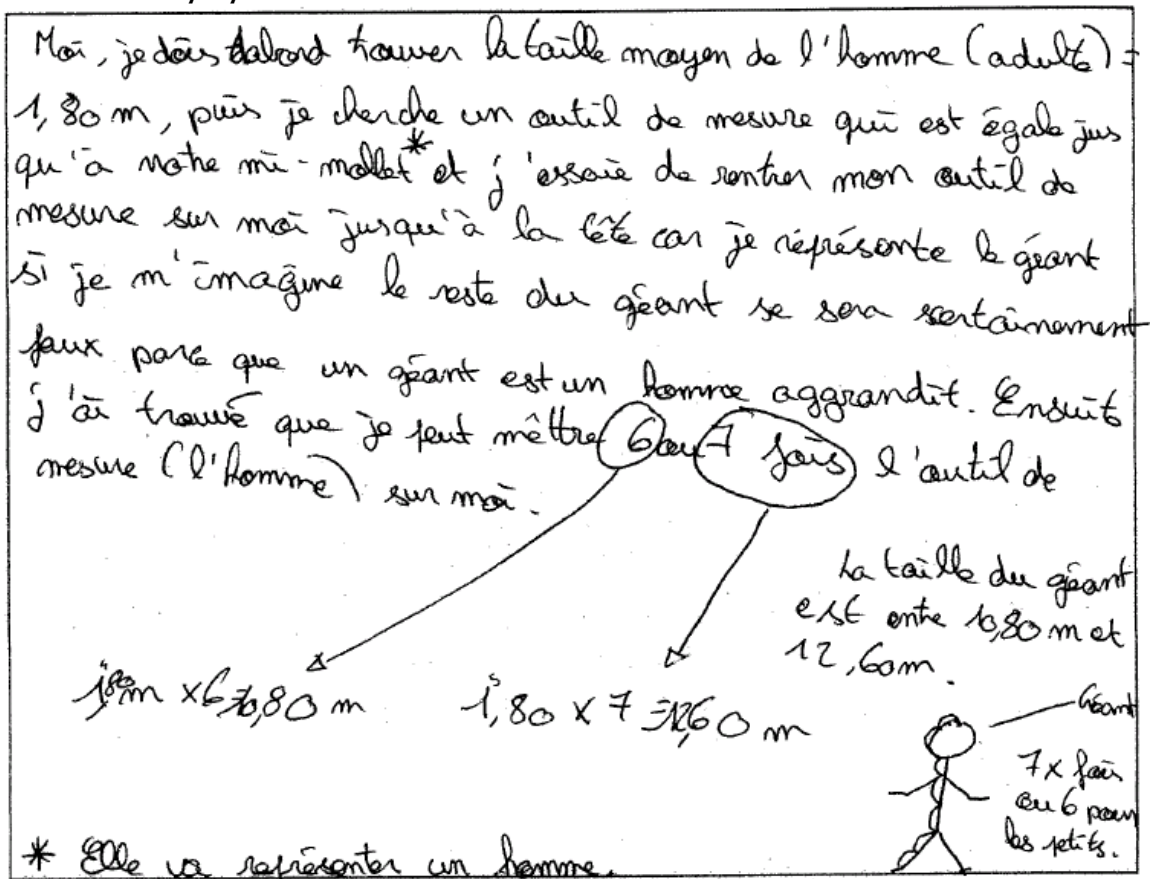 Moi, je dois dabord trouver la taille moyen de l'homme (adulte) =
1,80 m, puis je cherche un outil de mesure qui est égale jus
qu'à notre mi-mollet* et j'essaie de rentrer mon outil de
mesure sur moi jusqu'à la tête car je réprésente le géant
si je m'imagine le reste du géant se sera sertainement
faux parce que un géant est un homme aggrandit. Ensuite
j'ai trouvé que je peut mêttre 6 ou 7 fois l'outil de
mesure (l'homme) sur moi.
La taille du géant
est entre 10,80 m et
12,60m.
1,80m x 6 = 10,80 m
1,80 x 7 = 12,60 m
Géant
7x fois
ou 6 pour
les petits.
* Elle va représenter un homme.